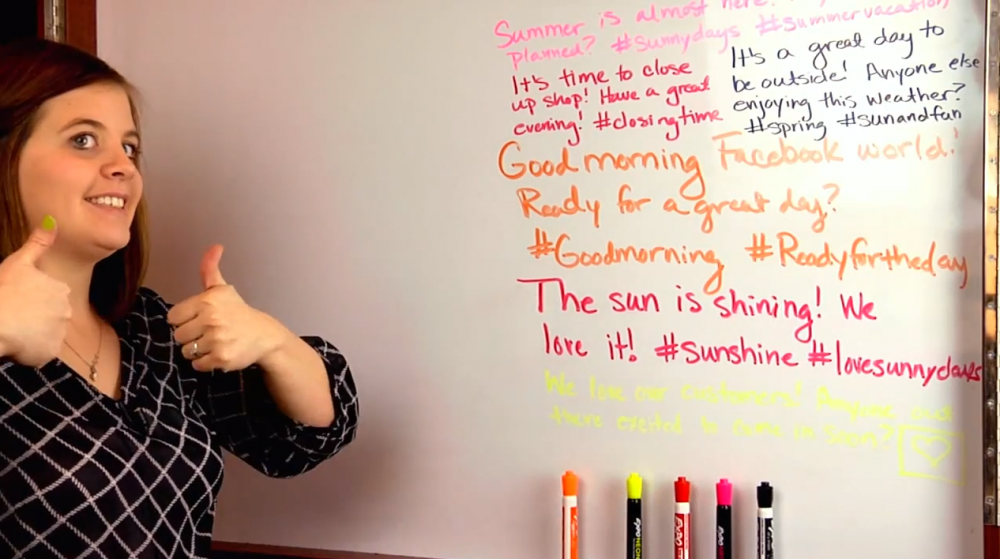 Summer is almost here!
planned? #Sunnydays #Summervacation
It's time to close
up shop! Have a great
evening! #closingtime
It's a great day to
be outside! Anyone else
enjoying this weather?
#spring #sunandfun
Good morning Facebook world!
Ready for a great day?
#Goodmorning #Readyfortheday
The sun is shining! We
love it! #sunshine #lovesunnydays
We love our customers! Anyone out
there excited to come in soon?
EXPO
EXPO NEON
EXPO
EXPO
EXPO